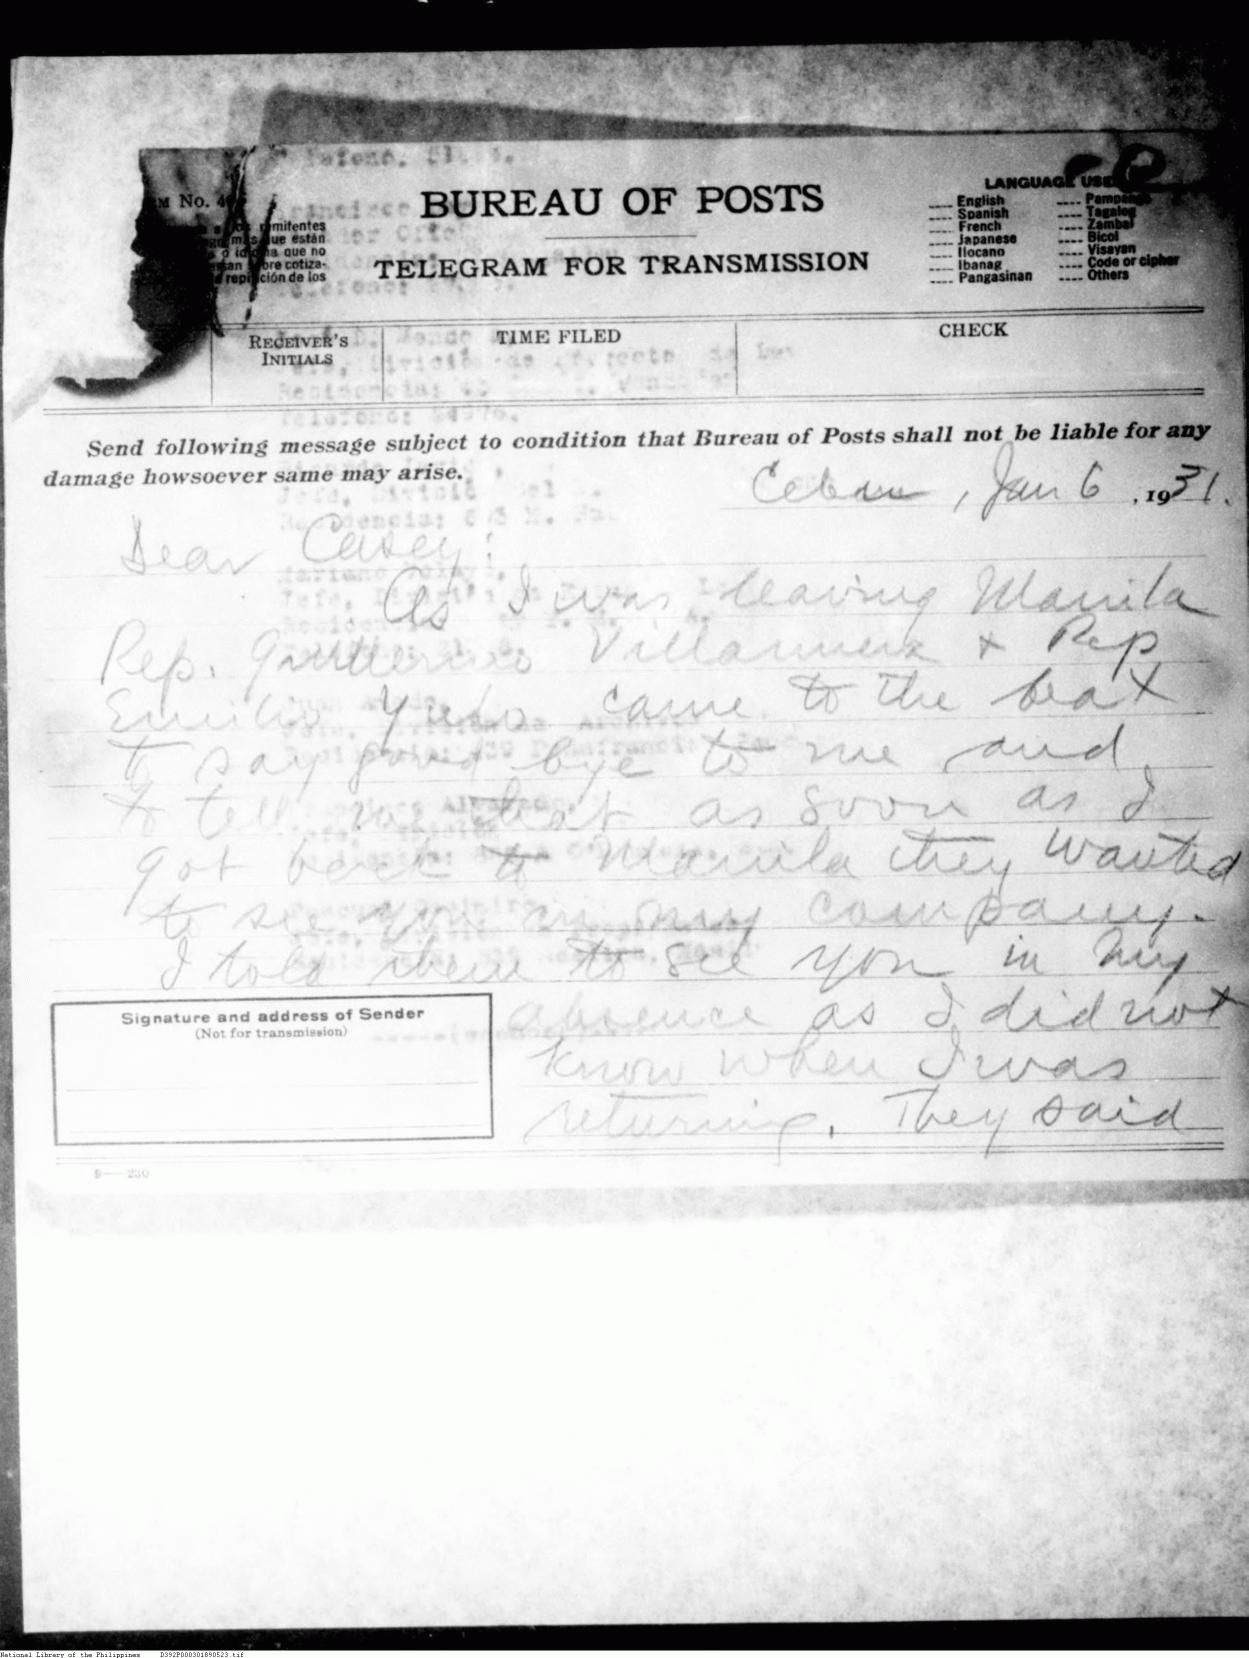 BUREAU OF POSTS
TELEGRAM FOR TRANSMISSION
No. 4
mitentes
que están
que no
bre cotiza-
ción de los
LANGUAGE USE
English
Spanish
French
Japanese
Ilocano
Ibanag
Pangasinan
Tagalog
Zambal
Bicol
Visayan
Code or cipher
Others
RECEIVER'S INITIALS
TIME FILED
CHECK
Send following message subject to condition that Bureau of Posts shall not be liable for any
damage howsoever same may arise.
Cebu, Jan 6, 1931.
Dear Casey:
As I was leaving Manila
Rep. Guillermo Villanueva + Rep
Emilio Yulo came to the boat
to say good bye to me and
to tell me that as soon as I
got back to Manila they wanted
to see you in my company.
I told them to see you in my
absence as I did not
know when I was
returning. They said
Signature and address of Sender
(Not for transmission)
9—230
National Library of the Philippines D392P000301890523.tif